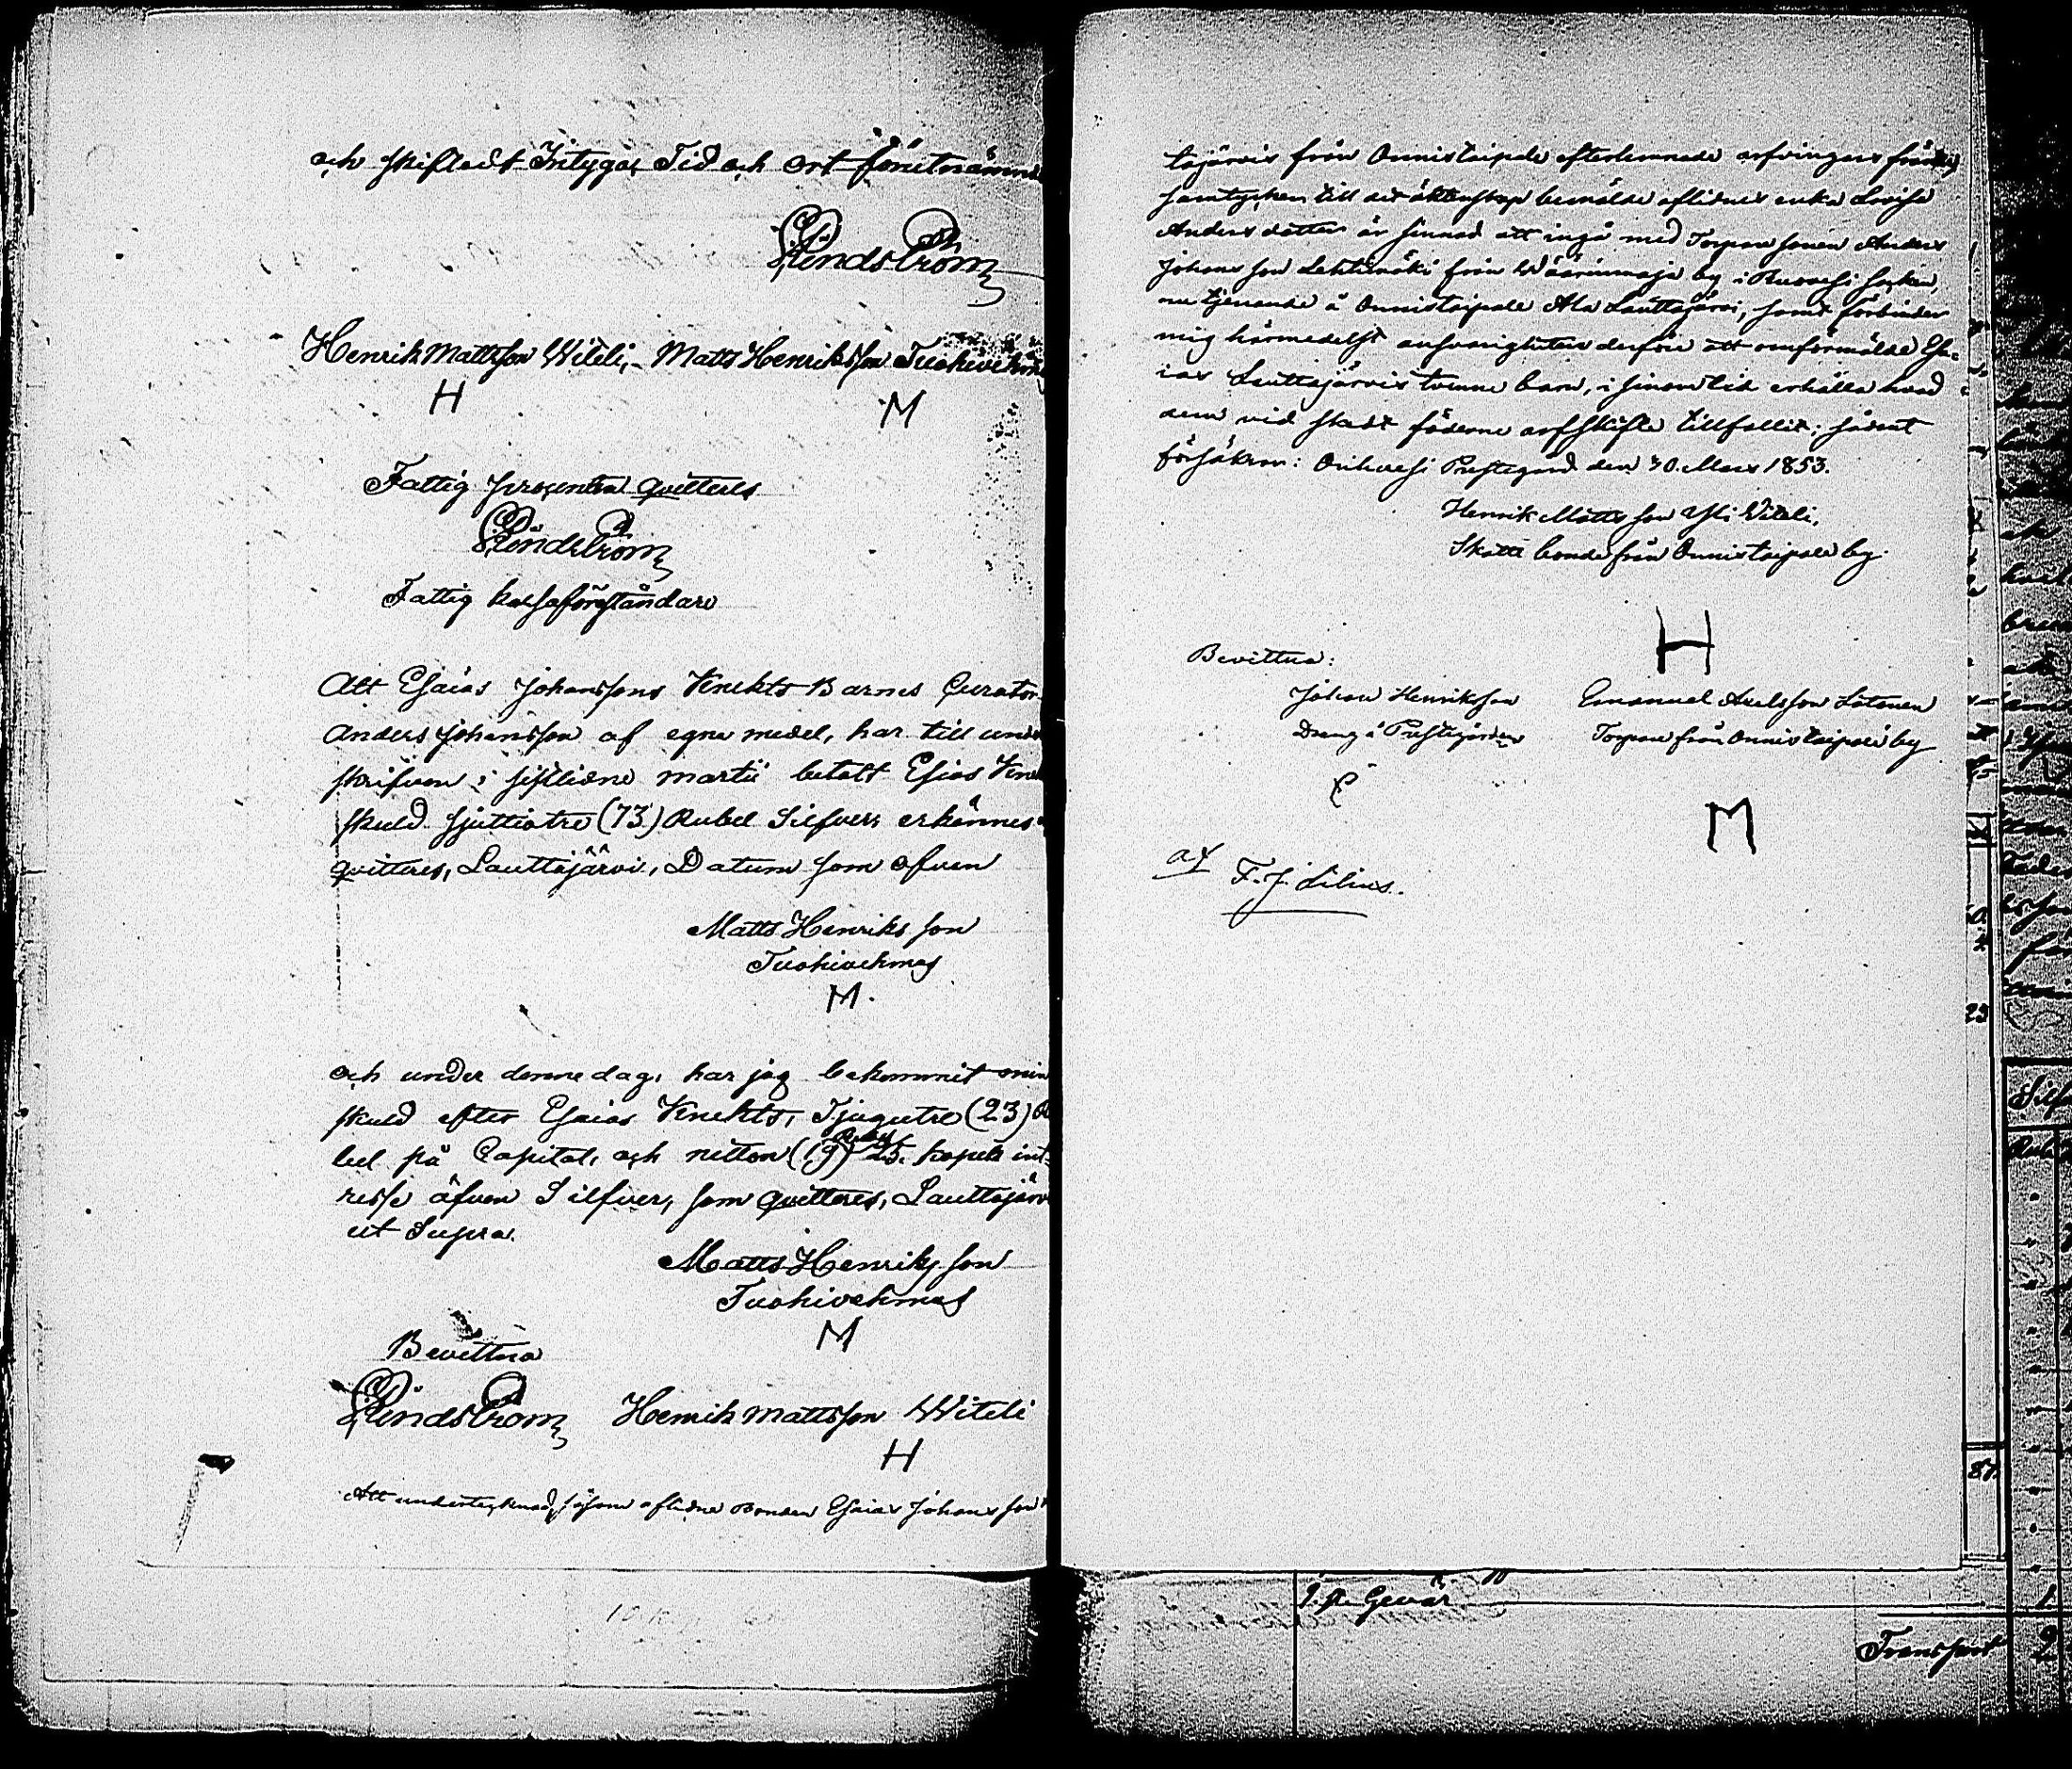 och skiftadt Intygar Tid och ort förutnämnd
Lindström
Henrik Mattsson Witeli, Matts Henriksson Tuohivehm
H M
Fattig procenten qvitteres
Lindström
Fattig kassaförståndare
Att Esaias Johanssons Knekts Barnes Curator
Anders Johansson af egna medel, har till und
skrifven i sistlidne martii betalt Esias Kne
skuld sjuttiotre (73) Rubel Silfver, erkännes
qvitteres, Lauttajärvi, Datum som ofvan
Matts Henriksson
Tuohivehmas
M.
och under denne dag, har jag bekommit min
skuld efter Esaias Knekts, Tjugutre (23) R
bel på Capital, och nitton (19) Rubel 25. kopek int
resse äfven Silfver, som qvitteres, Lauttajärv
ut Supra.
Matts Henriksson
Tuohivehmas
M
Bevittna
Lindström Henrik Mattsson Witeli
H
Att undertecknad, såsom aflidne Bonden Esaias Johansson
tajärvis från Onnistaipale efterlemnade arfvingars
samtycken till det äktenskap bemälde aflidnes enka Lovisa
Anders dotter är sinnad att ingå med Torpare sonen Anders
Johansson Lehtimäki från Wäärinmaja by i Ruovesi socken,
nu tjenande å Onnistaipale Ala Lauttajärvi, samt förbinder
mig härmedelst ansvarigheten derföre att omförmälde Esa-
ias Lauttajärvis tvenne barn, i sinom tid erhålla hvad
dem vid skedt fäderne arfskifte tillfallit; sådant
försäkrar: Orihvesi Prestegård den 30. Mars 1853.
Henrik Mattsson Yli Witeli,
Skatte bonde från Onnistaipale by.
H
Bevittna:
Johan Henriksson Emanuel Axelsson Lötonen
Dräng å Prestegården Torpare från Onnistaipale by
M
af F. J. Lilius.
1. st. Gevär
Transport